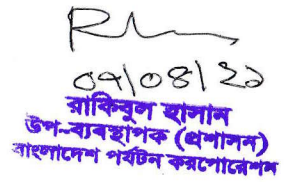 ০৭|০৪|২১
রাকিবুল হাসান
উপ-ব্যবস্থাপক (প্রশাসন)
বাংলাদেশ পর্যটন করপোরেশন